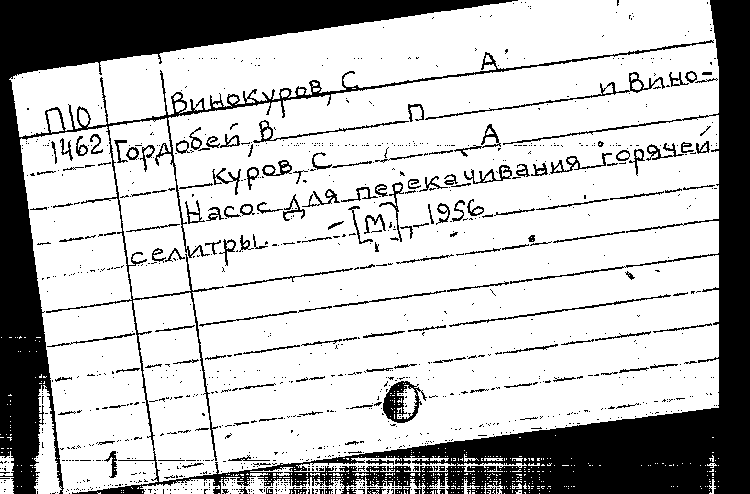 П10 Винокуров, С А.
1462 Гордобей, В П и Вино-
куров, С А
Насос для перекачивания горячей
селитры. - [М.], 1956
1